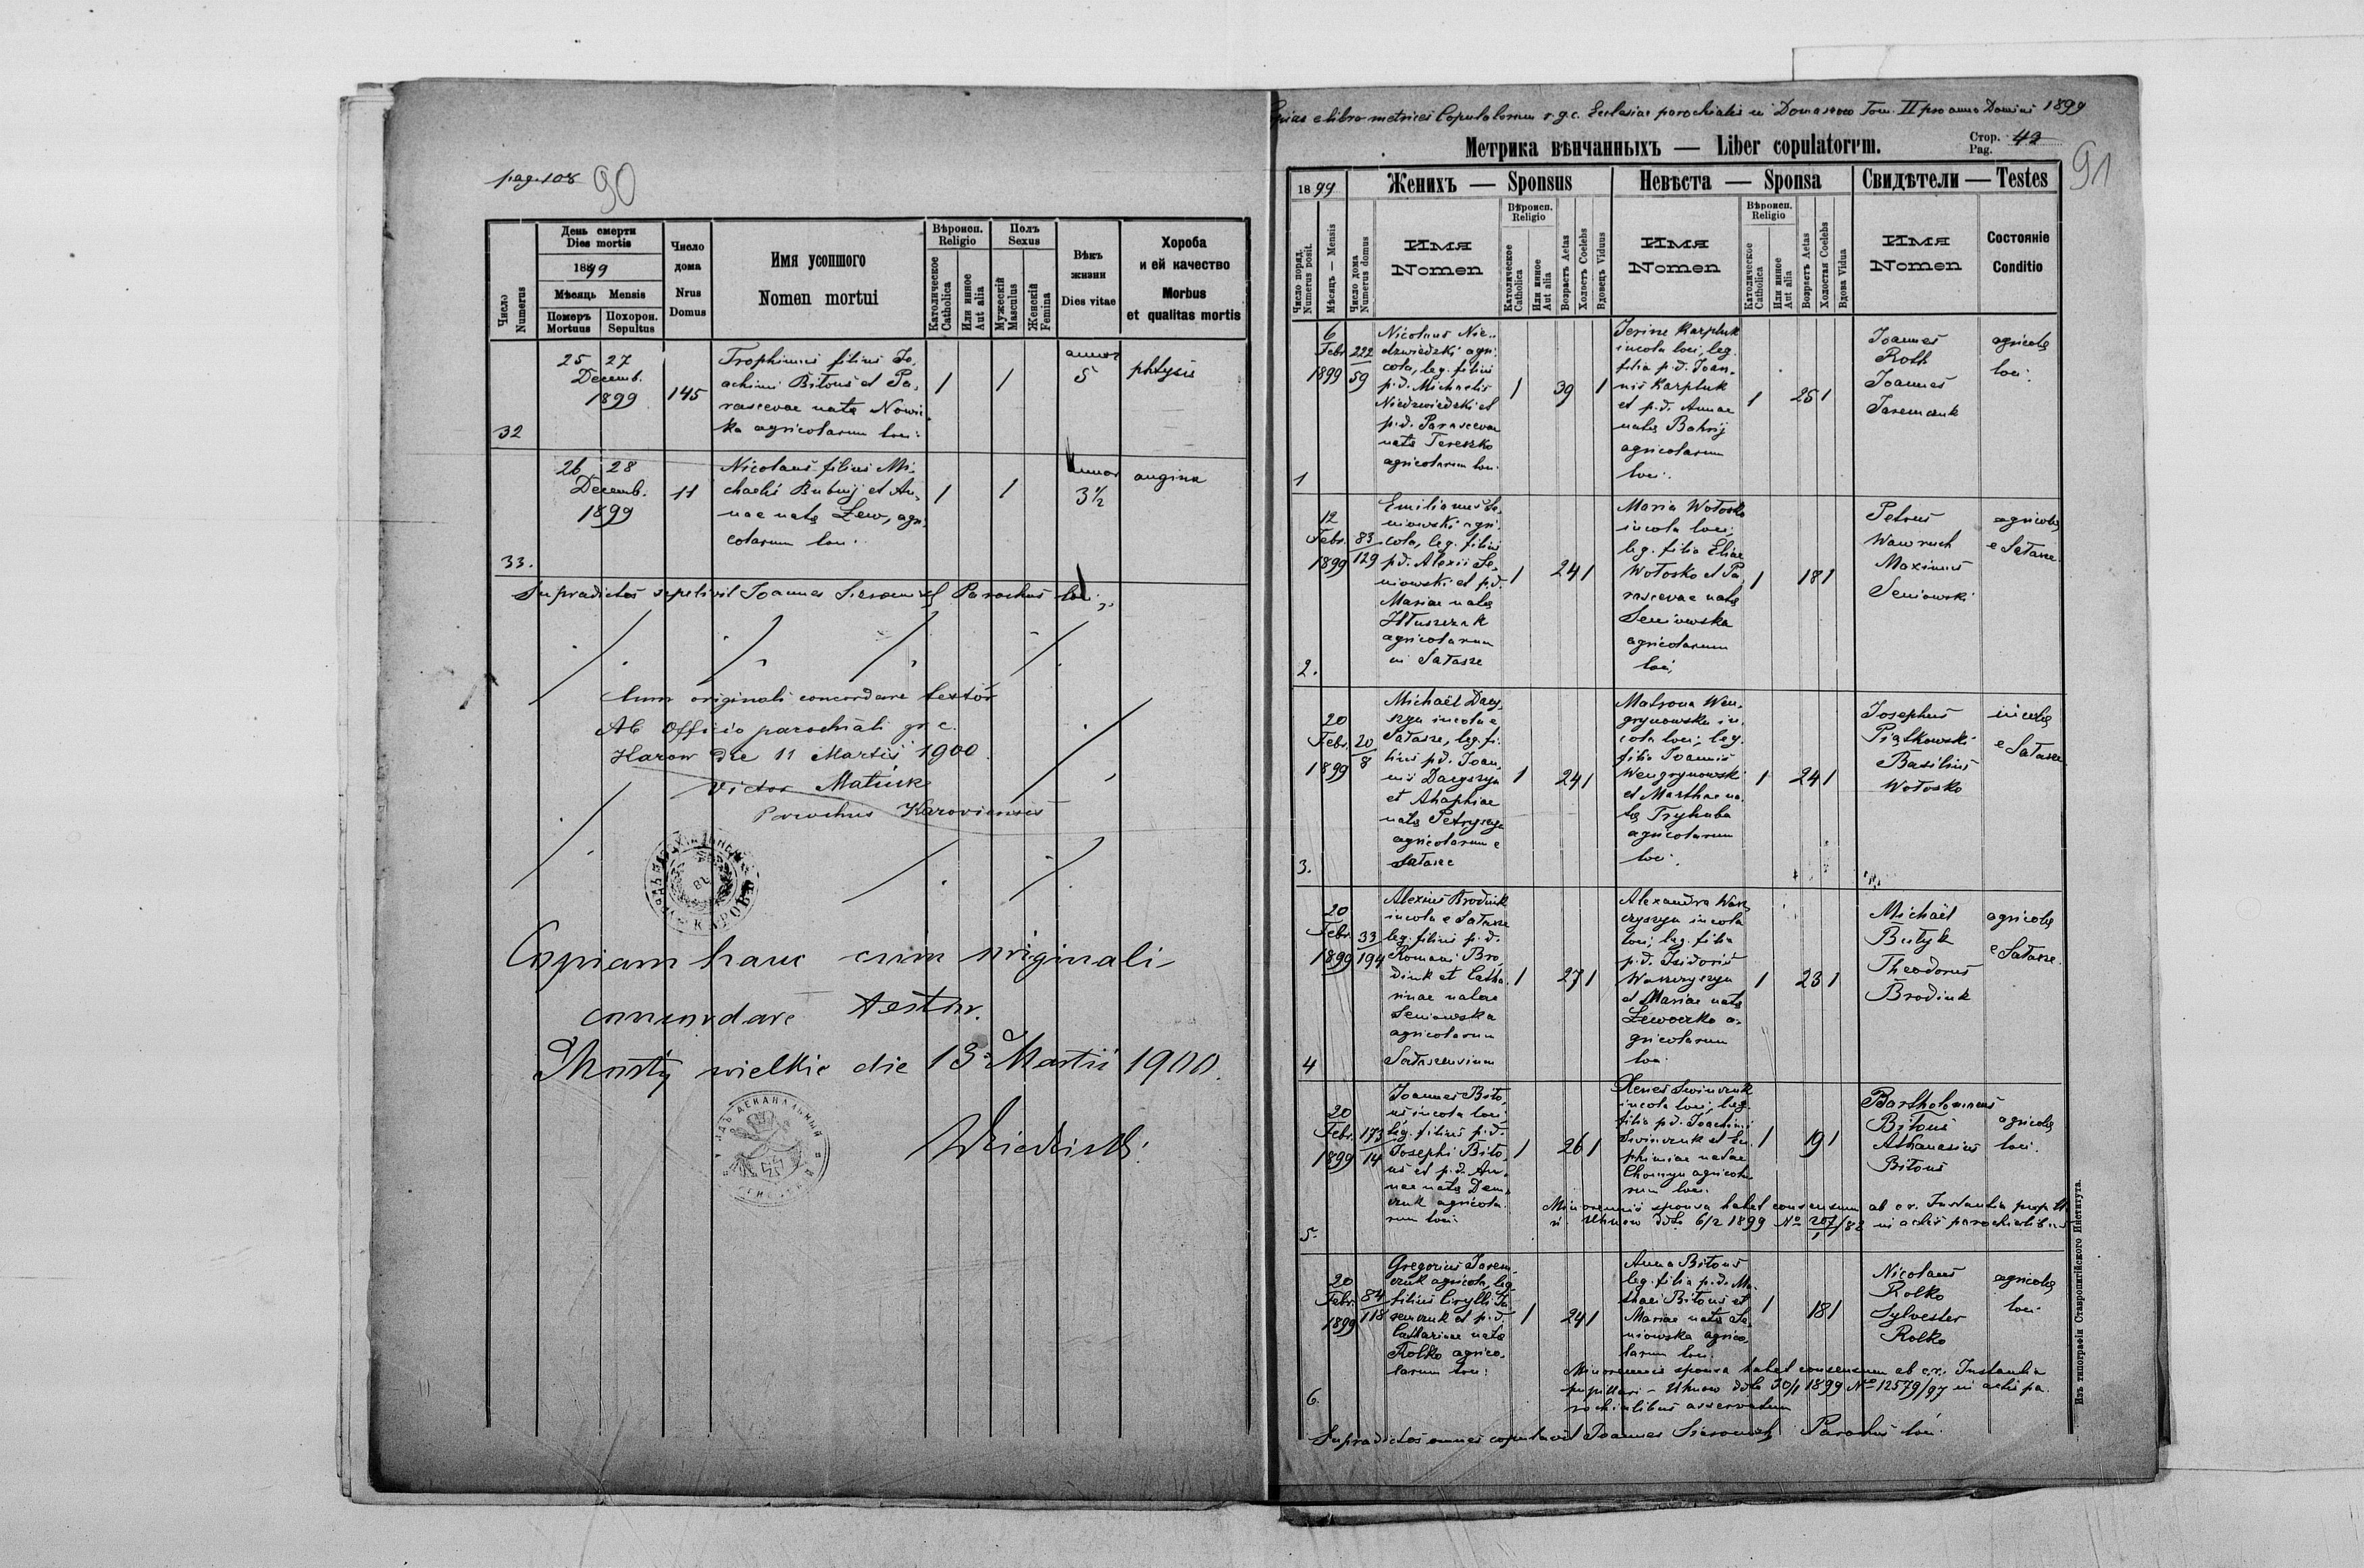 pag. 108
90
Число
Numerus
День смерти
Dies mortis
1899
Мѣсяць Mensis
Померъ
Mortuus
Похорон.
Sepultus
Число
дома
Nrus
Domus
Имя усопшого
Nomen mortui
Вѣроисп.
Religio
Католическое
Catholica
Или инное
Aut alia
Полъ
Sexus
Мужескій
Masculus
Женскій
Femina
Вѣкъ
жизни
Dies vitae
Хороба
и ей качество
Morbus
et qualitas mortis
32
25 27
Decemb.
1899
145
Trophimus filius Jo,
achimi Bitous et Pa,
rascevae natę Nowic,
ka agricolarum loci.
1
1
annor
5
phtysis
33.
26 28
Decemb.
1899
11
Nicolaus filius Mi,
chaelis Bubnij et An,
nae natę Lew, agri,
colarum loci.
1
1
annor
3 1/2
angina
Supradictos sepelivit Joannes Parochus loci
Cum originali concordare testor
Ab Officio parochiali gr. c.
Karow die 11 Martii 1900
Victor Matiuk
Parochus Karoviensis
Copiam hanc cum originali
concordare testor.
Mosty wielkie die 13 Martii 1900.
e libro metrices Copulatorum r.g.c. Ecclesiae parochialis in Domaszow Tom. II pro anno Domini 1899
Метрика вѣнчанныхъ — Liber copulatorum.
Стор.
Pag. 42
91
1899
Женихъ — Sponsus
Невѣста — Sponsa
Свидѣтели — Testes
Число поряд.
Numerus posit.
Мѣсяцъ — Mensis
Число дома
Numerus domus
Имя
Nomen
Вѣроисп.
Religio
Католическое
Catholica
Или инное
Aut alia
Возрастъ Aetas
Холостъ Coelebs
Вдовецъ Viduus
Имя
Nomen
Вѣроисп.
Religio
Католическое
Catholica
Или инное
Aut alia
Возрастъ Aetas
Холостая Coelebs
Вдова Vidua
Имя
Nomen
Состояніе
Conditio
1
6
Febr.
1899
222
59
Nicolaus Nie,
dzwiedzki agri,
cola, leg. filius
p.d. Michaelis
Niedzwiedzki et
p.d. Parascevae
natę Tereszko
agricolarum loci.
1
39
1
Irine Karpluk
incola loci, leg.
filia p.d. Joan,
nis Karpluk
et p.d. Annae
natę Bahrij
agricolarum
loci.
1
25
1
Joannes
Roth
Joannes
Jaremczuk
agricolę
loci.
2.
12
Febr.
1899
83
129
Emilianus Se,
niowski agri,
cola, leg. filius
p.d. Alexii Se,
niowski et p.d.
Mariae natę
Hłuszczak
agricolarum
in Sałasze
1
24
1
Maria Wołosko
incola loci,
leg. filia Eliae
Wołosko et Pa,
rascevae natę
Seniowska
agricolarum
loci,
1
18
1
Petrus
Wawruch
Maximus
Seniowski
agricolę
e Sałasze
3.
20
Febr.
1899
20
8
Michaël Dacy,
szyn incola e
Sałasze, leg. fi,
lius p.d. Joan,
nis Dacyszyn
et Ahaphiae
natę
agricolarum e
Sałasze
1
24
1
Matrona Wen,
grynowska in,
cola loci, leg.
filia Joannis
Wengrynowski
et Marthae na,
tę Tryhuba
agricolarum
loci.
1
24
1
Josephus
Piątkowski
Basilius
Wołosko
incolę
e Sałasze
4
20
Febr.
1899
33
194
Alexius Brodiuk
incola e Sałasze
leg. filius p.d.
Romani Bro,
diuk et Catha,
rinae natae
Seniowska
agricolarum
1
27
1
Alexandra
incola
loci, leg. filia
p.d. Isidoris
et Mariae natę
a,
gricolarum
loci.
1
23
1
Michaël
Bułyk
Theodorus
Brodiuk
agricolę
e Sałasze
5.
20
Febr.
1899
173
14
Joannes Bito,
us incola loci
leg. filius p.d.
Josephi Bito,
us et p.d. An,
nae natę Dem,
czuk agricola,
rum loci.
1
26
1
incola loci, leg.
filia p.d. Joachimi
et Eu,
phimiae natae
agricola,
rum loci.
1
19
1
Bartholomaeus
Bitous
Athanasius
Bitous
agricolę
loci.
Minorennis sponsa habet consensum ab c.r. Instantia pupill.
in Uhnow ddto 6/2 1899 No 207/82 in actis parochialibus
6.
20
Febr.
1899
84
118
Gregorius Jarem,
czuk agricola, leg.
filius Cirylli Ja,
remczuk et p.d.
Catharinae natę
Rołko agrico,
larum loci.
1
24
1
Anna Bitous
leg. filia p.d. Ma,
thaei Bitous et
Mariae natę Se,
niowska agrico,
larum loci.
1
18
1
Nicolaus
Rołko
Sylvester
Rołko
agricolę
loci.
Minorennis sponsa habet consensum ab c.r. Instantia
pupillari – Uhnow ddto 30/1 1899 No 12579/97 in actis pa,
rochialibus asservatum
Supradictos omnes copulavit Joannes Parochus loci.
Изъ типографіи Ставропигійского Института.